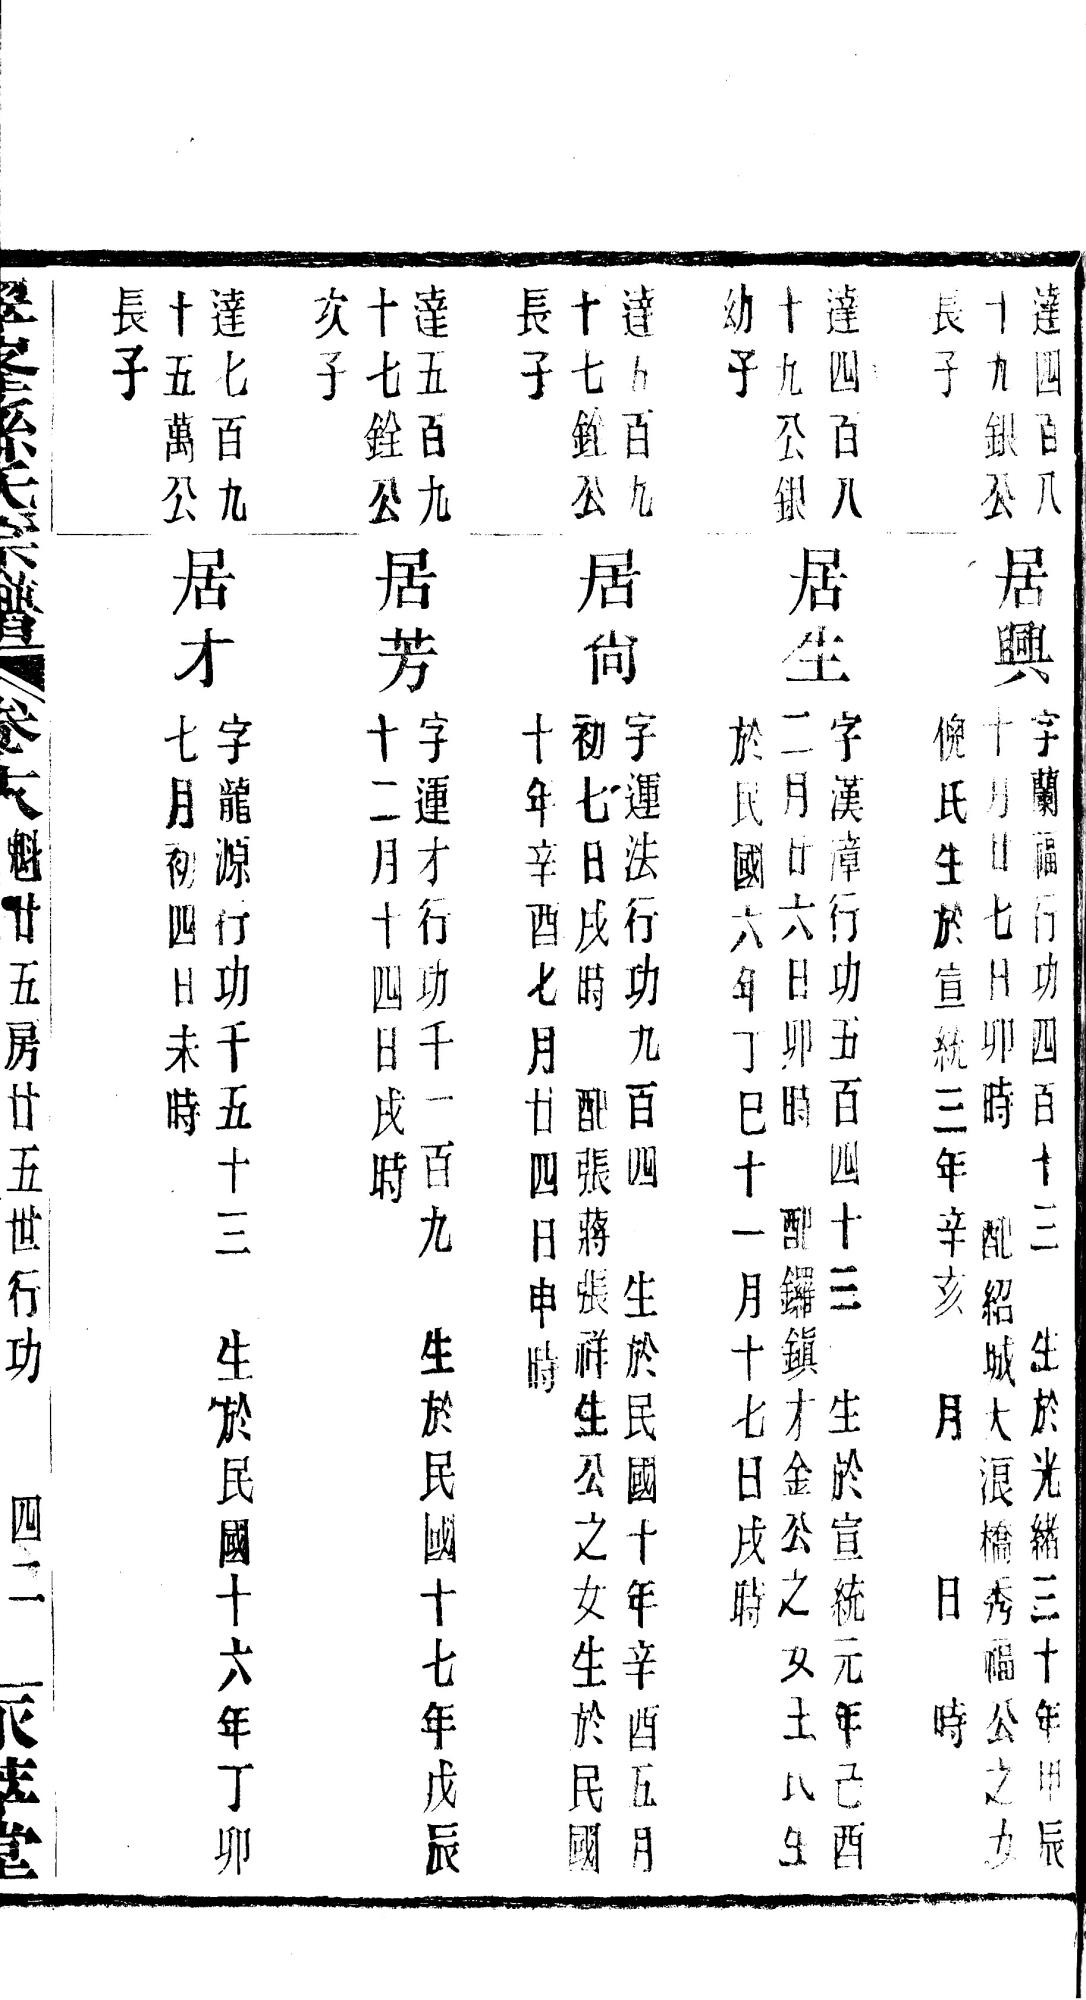 達四百八
十九銀公
長子
居興
字蘭福行功四百十三　生於光緒三十年甲辰
十月廿七日卯時　配紹城大浪橋秀福公之女
倪氏生於宣統三年辛亥　月　日　時
達四百八
十九公銀
幼子
居生
字漢漳行功五百四十三　生於宣統元年己酉
二月廿六日卯時　配鑼鎮才金公之女王氏生
於民國六年丁巳十一月十七日戌時
達五百九
十七銓公
長子
居尙
字運法行功九百四　生於民國十年辛酉五月
初七日戌時　配張蔣張祥生公之女生於民國
十年辛酉七月廿四日申時
達五百九
十七銓公
次子
居芳
字運才行功千一百九　生於民國十七年戊辰
十二月十四日戌時
達七百九
十五萬公
長子
居才
字龍源行功千五十三　生於民國十六年丁卯
七月初四日未時
孫氏宗譜　卷　魁廿五房廿五世行功　四二　堂